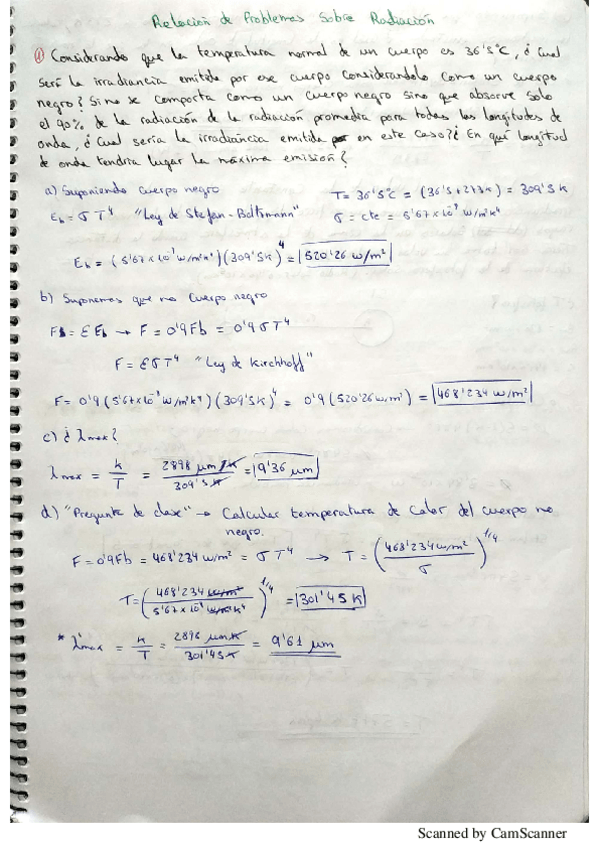 Relación de Problemas Sobre Radiación
① Considerando que la temperatura normal de un cuerpo es 36'5°C, ¿cual
será la irradiancia emitida por ese cuerpo considerandolo como un cuerpo
negro? Si no se comporta como un cuerpo negro sino que absorve solo
el 90% de la radiación de la radiación promedia para todas las longitudes de
onda, ¿cual sería la irradiancia emitida en este caso? ¿En qué longitud
de onda tendría lugar la máxima emisión?
a) Suponiendo cuerpo negro
T= 36'5°C = (36'5+273K) = 309'5K
E_b = σ T⁴ "Ley de Stefan-Boltzmann"
σ = cte = 5'67x10⁻⁸ W/m²K⁴
E_b = (5'67x10⁻⁸ W/m²K⁴)(309'5K)⁴ = 520'26 W/m²
b) Suponemos que no cuerpo negro
= ε E_b → F = 0'9Fb = 0'9 σ T⁴
F = ε σ T⁴ "Ley de Kirchhoff"
F = 0'9 (5'67x10⁻⁸ W/m²K⁴)(309'5K)⁴ = 0'9 (520'26 W/m²) = 468'234 W/m²
c) ¿ λmax?
λmax = k/T = 2898 μm K/309'5K = 9'36 μm
d) "Pregunta de clase" → Calcular temperatura de calor del cuerpo no
negro.
F = 0'9Fb = 468'234 W/m² = σ T⁴ → T = (468'234 W/m²/σ)^1/4
T = (468'234 W/m²/5'67x10⁻⁸ W/m²K⁴)^1/4 = 301'45 K
* λ'max = k/T = 2898 μm K/301'45K = 9'61 μm
Scanned by CamScanner